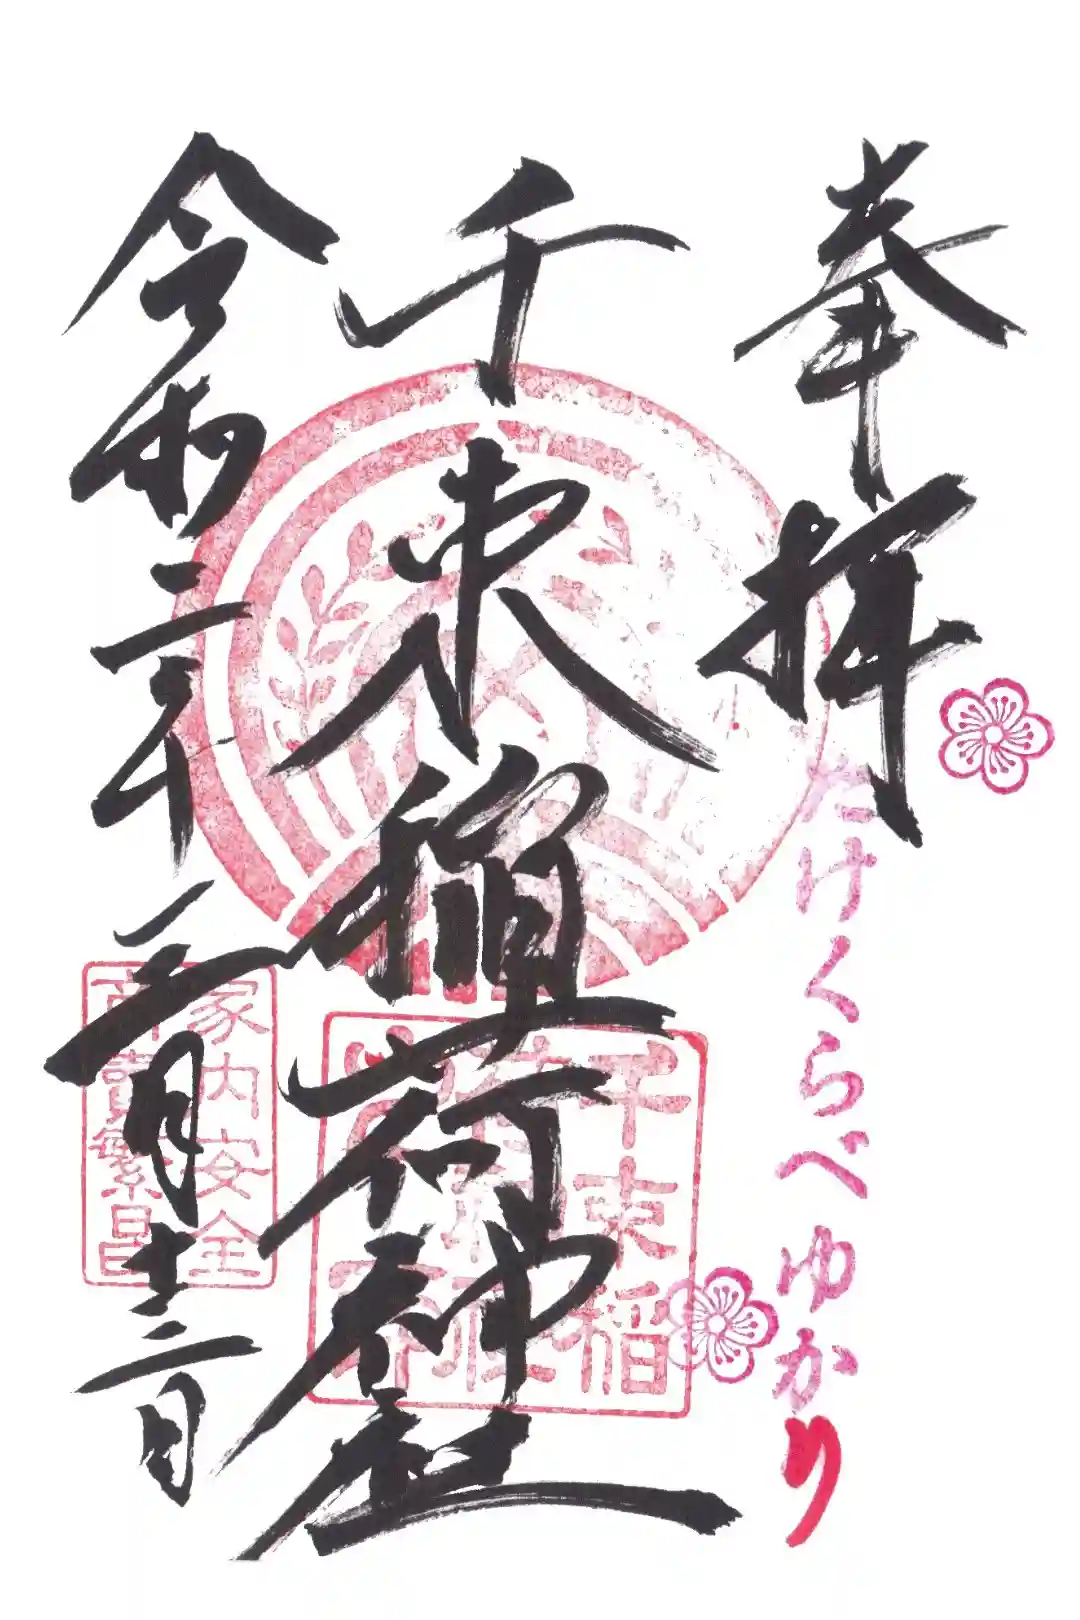 奉拝
たけくらべ ゆかり
千束稲荷神社
令和 年 月 日
千束稲
荷神社
家内安全
商賣繁昌